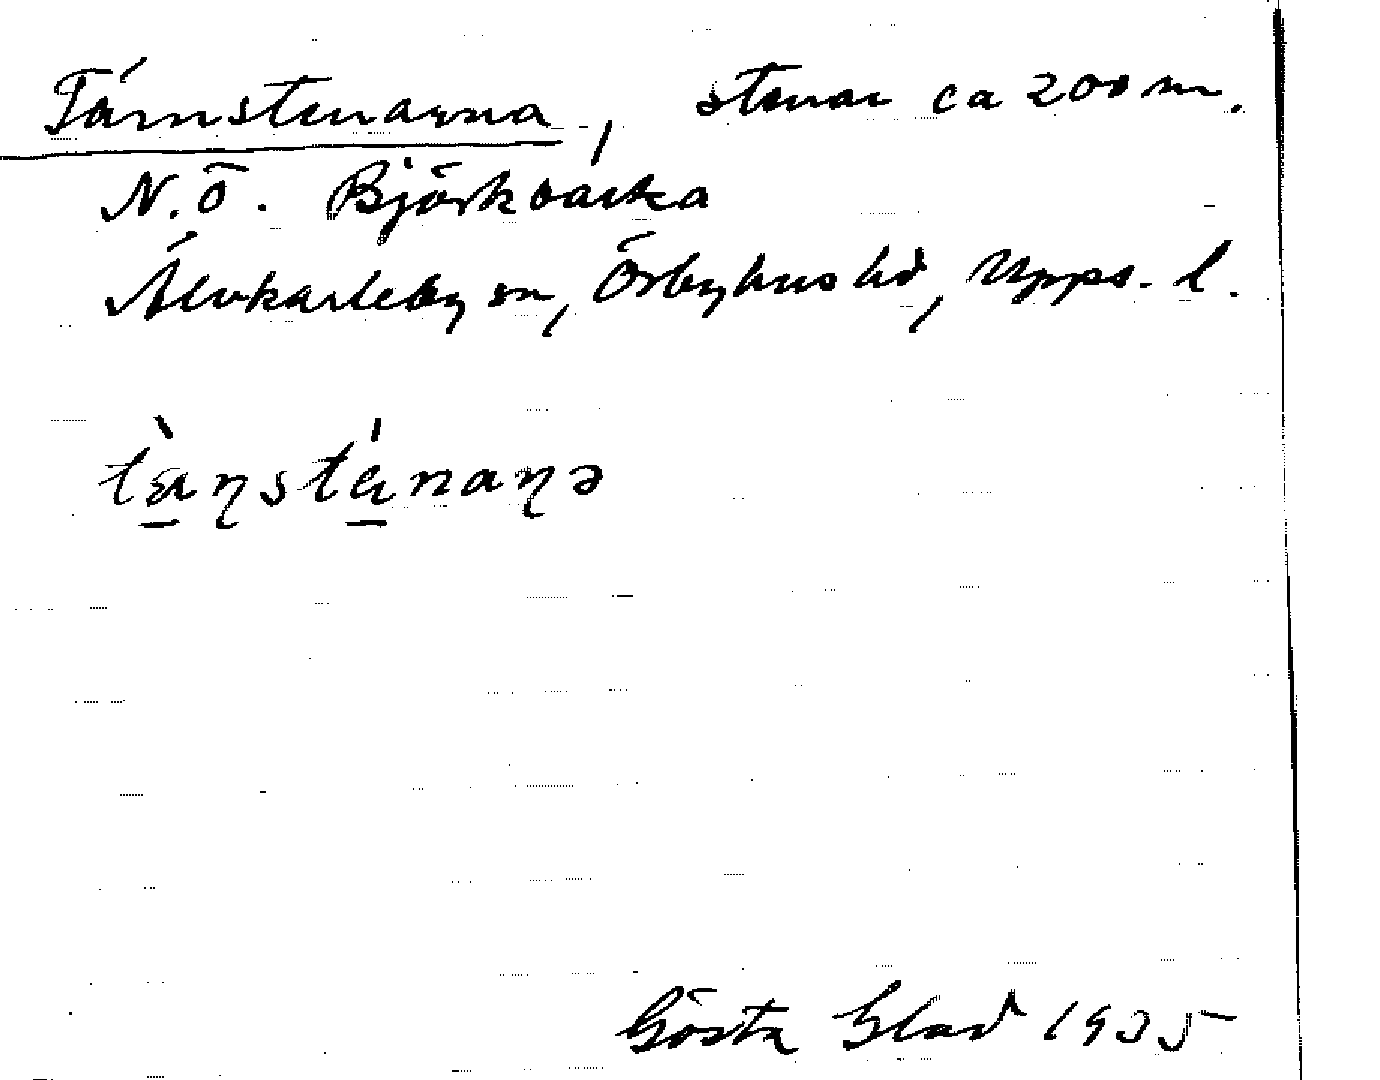 Tärnstenarna, stenar ca 200 m.
N.Ö. Björkbacka
Älvkarleby sn, Örbyhus hd, Upps. l.
Gösta Glad 1935